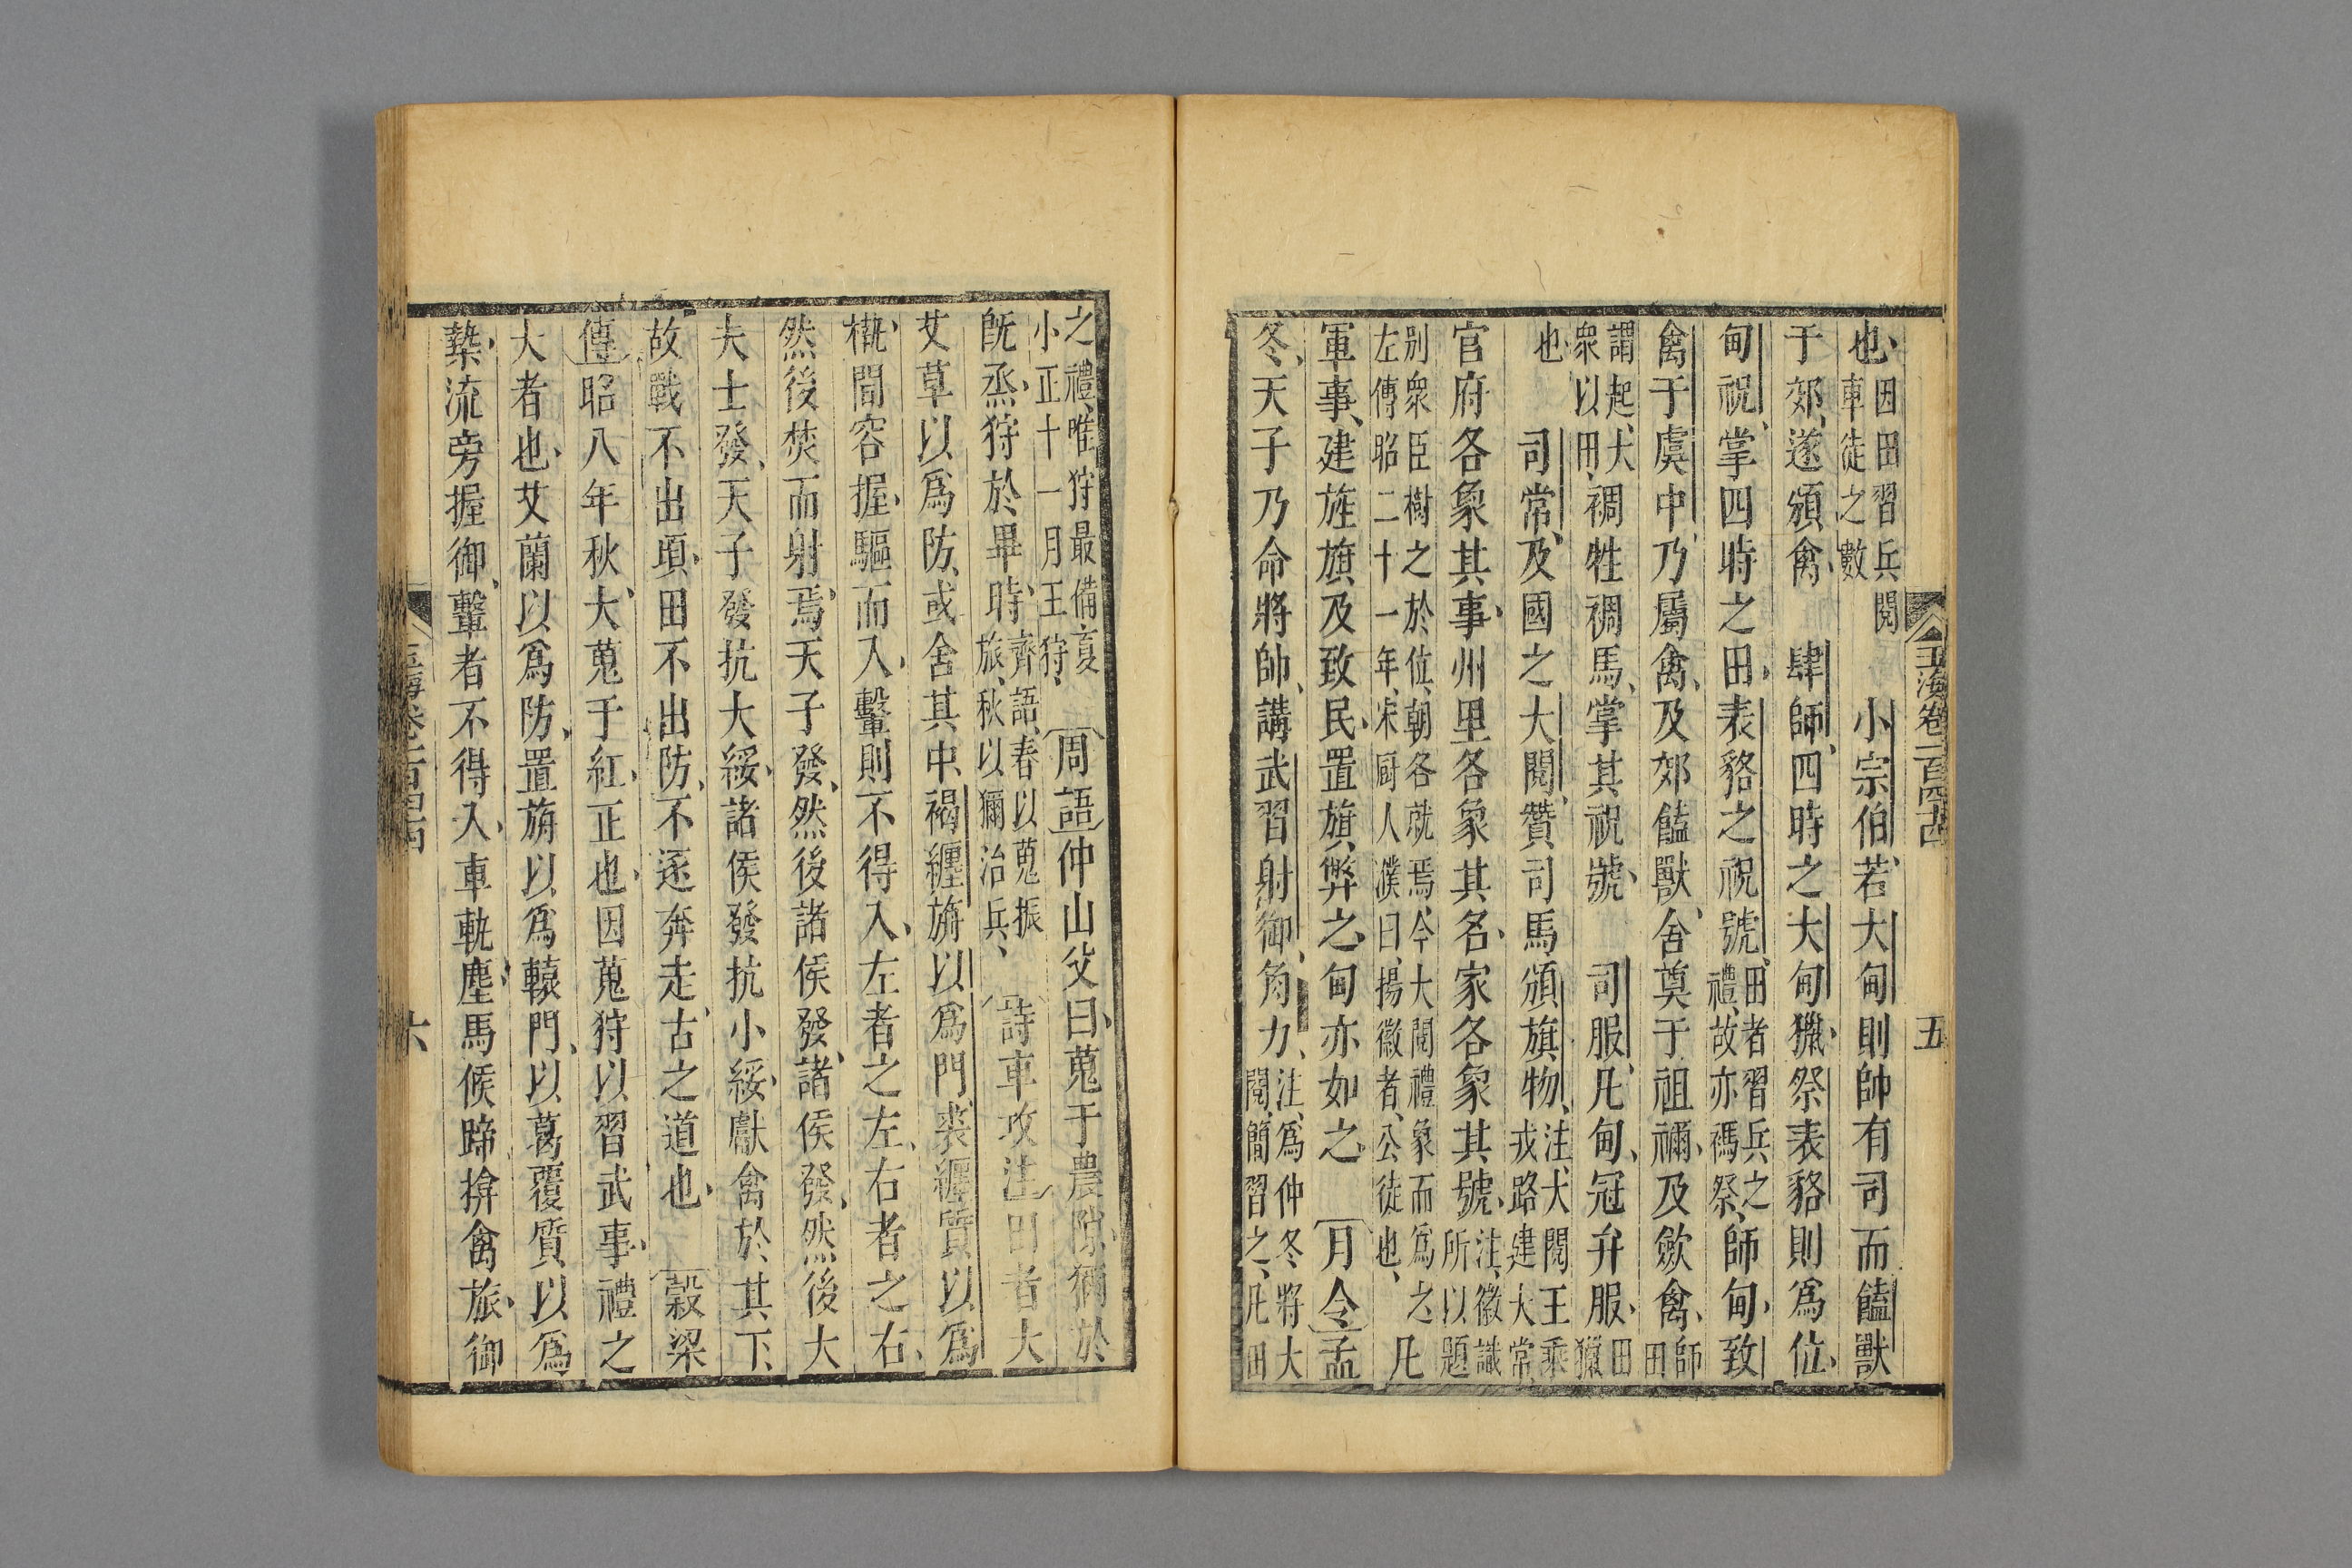 玉海卷一百四十四 五
也因田習兵閱車徒之數 小宗伯若大甸則帥有司而饁獸
于郊遂頒禽 肆師四時之大甸獵祭表貉則爲位
甸祝掌四時之田表貉之祝號田者習兵之禮故亦禡祭師甸致
禽于虞中乃屬禽及郊饁獸舍奠于祖禰及斂禽師田
謂起大衆以田禂牲禂馬掌其祝號 司服凡甸冠弁服田獵
也 司常及國之大閱贊司馬頒旗物注大閱王乘戎路建大常
官府各象其事州里各象其名家各象其號注徽識所以題
别衆臣樹之於位朝各就焉今大閱禮象而爲之左傳昭二十一年宋厨人濮曰揚徽者公徒也 凡
軍事建旌旗及致民置旗弊之甸亦如之 月令孟
冬天子乃命將帥講武習射御角力注爲仲冬將大閱簡習之凡田
之禮唯狩最備夏小正十一月王狩 周語仲山父曰蒐于農隙獮於
旣烝狩於畢時齊語春以蒐振旅秋以獮治兵 詩車攻注田者大
艾草以爲防或舍其中褐纏旃以爲門裘纏質以爲
槸間容握驅而入轚則不得入左者之左右者之右
然後焚而射焉天子發然後諸侯發諸侯發然後大
夫士發天子發抗大綏諸侯發抗小綏獻禽於其下
故戰不出頃田不出防不逐奔走古之道也 穀梁
傳昭八年秋大蒐于紅正也因蒐狩以習武事禮之
大者也艾蘭以爲防置旃以爲轅門以葛覆質以爲
槷流旁握御轚者不得入車軌塵馬候蹄揜禽旅御
六